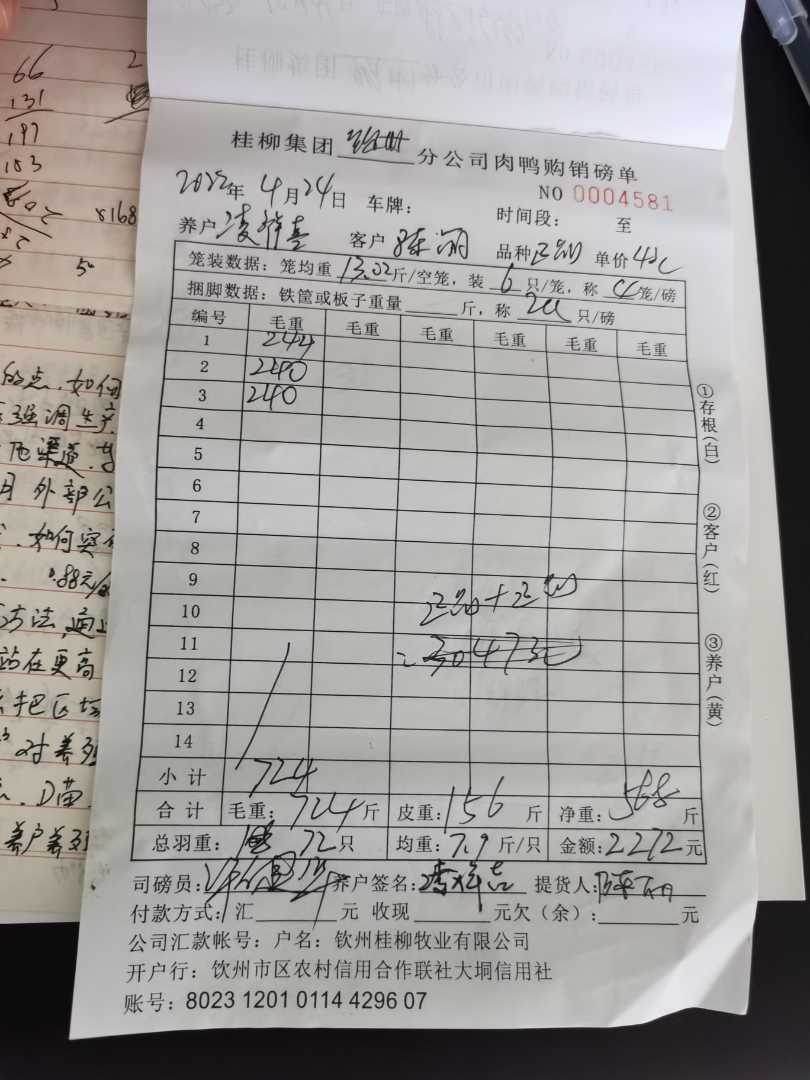 66 2
131
197
153
8168
50
的点。如何
强调生产
外部公
如何突
0.88元/
方法,
站在更高
把区域
对养殖
D苗
养户养殖
桂柳集团 分公司肉鸭购销磅单
NO 0004581
2022年 4月24日 车牌: 时间段: 至
养户 凌祥喜 客户 陈丽 品种 正品 单价 4元
笼装数据:笼均重 13.02斤/空笼,装 6 只/笼,称 笼/磅
捆脚数据:铁筐或板子重量 斤,称 只/磅
编号 毛重 毛重 毛重 毛重 毛重 毛重
1 244
2 240
3 240
4
5
6
7
8
9
10
11
12
13
14
正品+正品
=30473元
小计 724
合计 毛重:724斤 皮重:156 斤 净重:568 斤
总羽重: 72只 均重:7.9斤/只 金额:2272元
司磅员: 养户签名:凌祥喜 提货人:陈丽
付款方式:汇 元 收现 元欠(余): 元
公司汇款帐号:户名:钦州桂柳牧业有限公司
开户行:钦州市区农村信用合作联社大垌信用社
账号:8023 1201 0114 4296 07
①存根(白)
②客户(红)
③养户(黄)